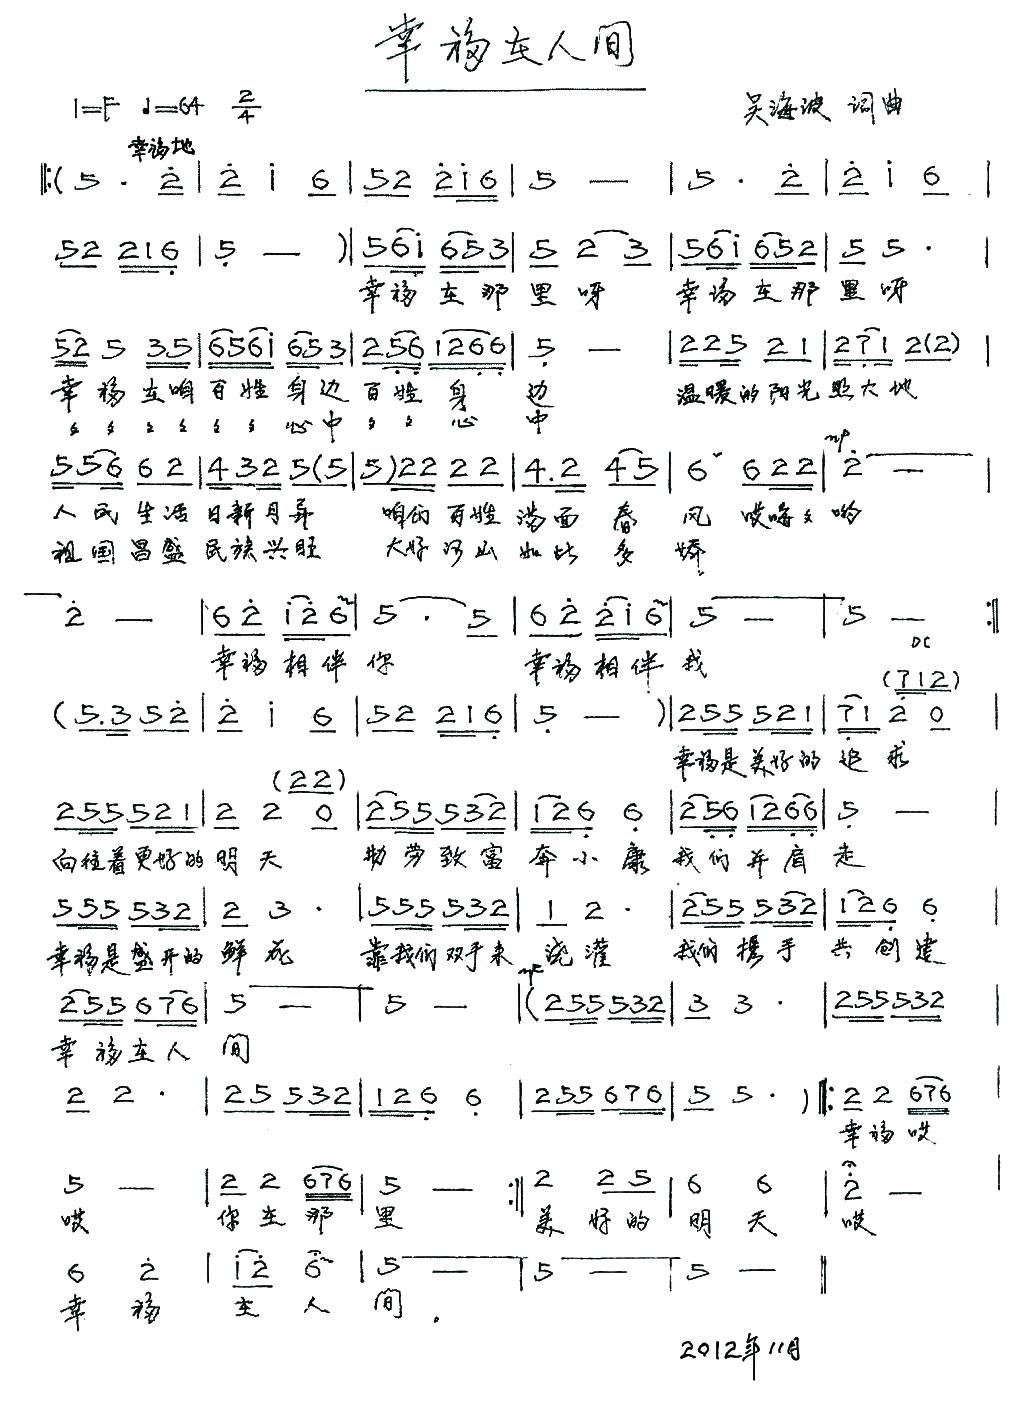 幸福在人间
1=F ♩=64 2/4
吴海波 词曲
幸福地
‖:( 5 · 2̇ | 2̇ i 6 | 52 2̇i6 | 5 — | 5 · 2̇ | 2̇ i 6 |
52 216 | 5 — ) | 56i 653 | 5 2 3 | 56i 652 | 5 5 · |
幸福在那里呀 幸福在那里呀
52 5 35 | 656i 653 | 256 1266 | 5 — | 225 21 | 271 2(2) |
幸福在咱百姓身边百姓身边 温暖的阳光照大地
〻〻〻〻〻〻心中〻〻心中
556 62 | 432 5(5 | 5)22 22 | 4.2 45 | 6ˇ 622 | 2̇ — |
mp
人民生活日新月异 咱们百姓满面春风 哎嗨〻哟
祖国昌盛民族兴旺 大好河山如此多娇
2̇ — | 62̇ i2̇6 | 5 · 5 | 62̇ 2̇i6 | 5 — | 5 — :‖
幸福相伴你 幸福相伴我
DC
(712)
( 5.3 52̇ | 2̇ i 6 | 52 216 | 5 — ) | 255 521 | 71 2 0 |
幸福是美好的追求
(22)
255 521 | 2 2 0 | 255 532 | 126 6 | 256 1266 | 5 — |
向往着更好的明天 勤劳致富奔小康 我们并肩走
555 532 | 2 3 · | 555 532 | 1 2 · | 255 532 | 126 6 |
幸福是盛开的鲜花 靠我们双手来浇灌 我们携手共创建
mf
255 676 | 5 — | 5 — | ( 255 532 | 3 3 · | 255 532
幸福在人间
2 2 · | 25 532 | 126 6 | 255 676 | 5 5 · ) ‖: 2 2 676
幸福哎
5 — | 2 2 676 | 5 — :‖ 2 25 | 6 6 | 2̇ — |
哎 你在那里 美好的明天哎
6 2̇ | i2̇ 6 | 5 — | 5 — | 5 — ‖
幸福在人间.
2012年11月